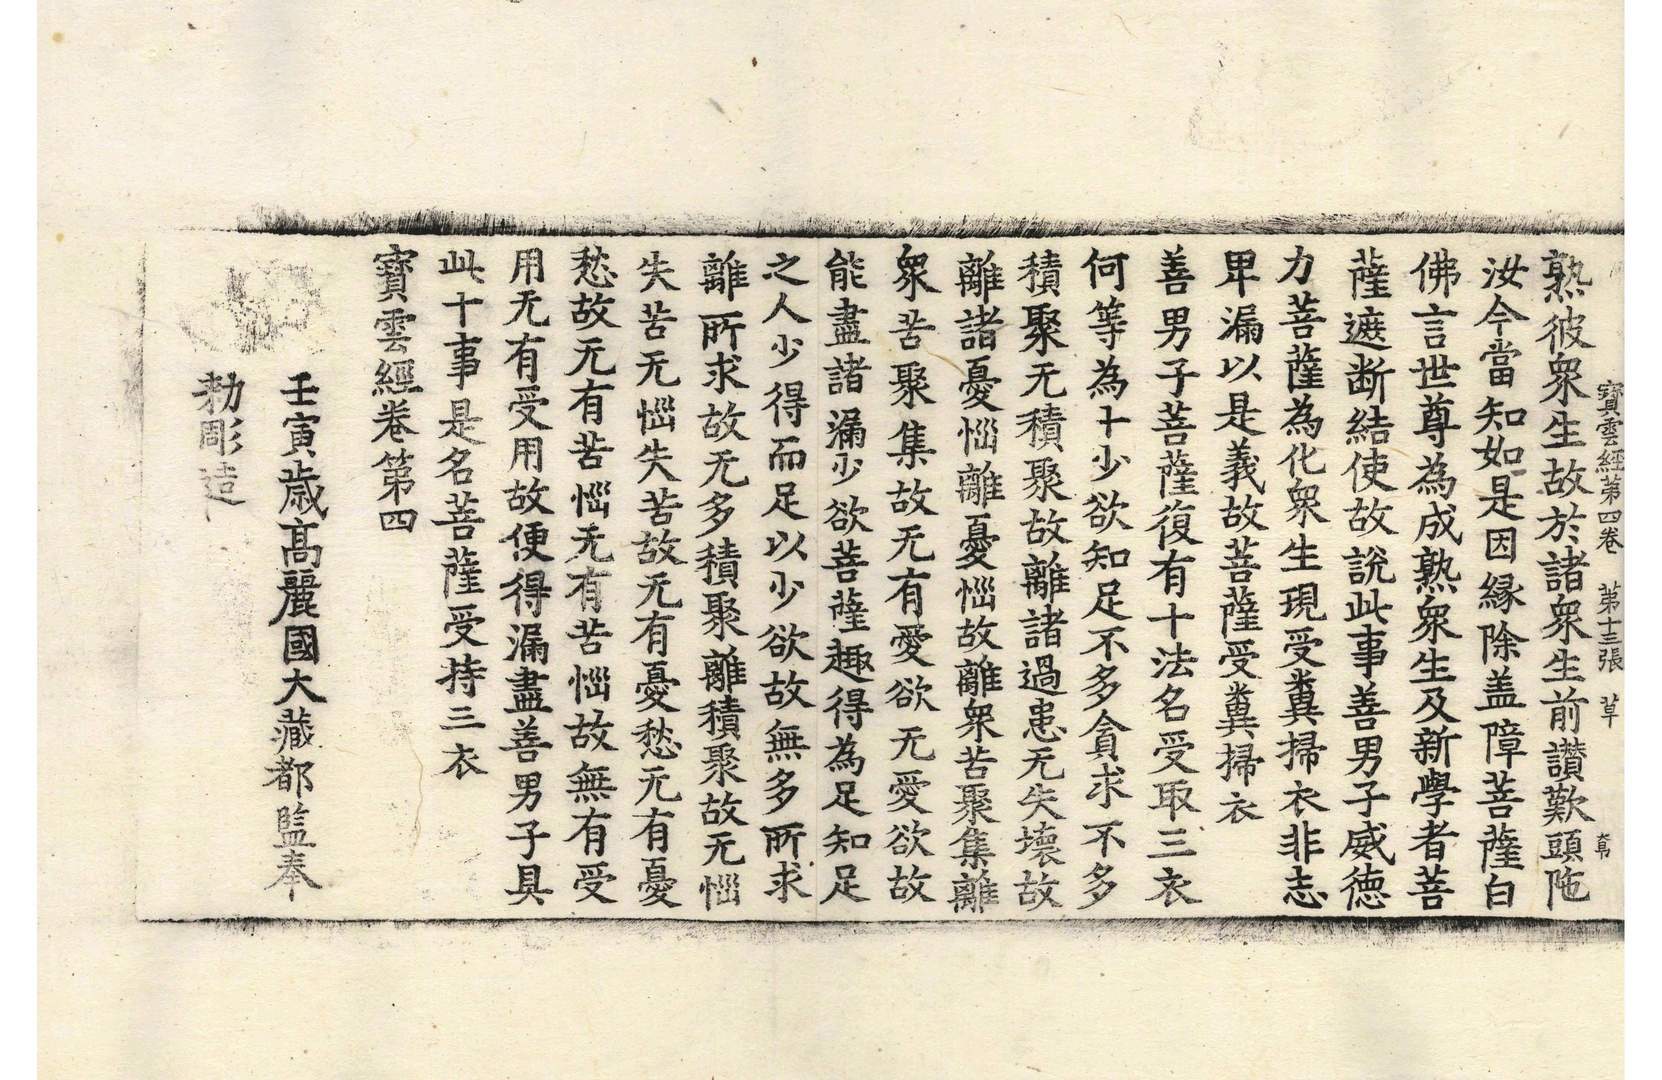 寳雲經第四卷 第十三張 草
熟彼衆生故於諸衆生前讃歎頭陁
汝今當知如是因縁除盖障菩薩白
佛言世尊為成熟衆生及新學者菩
薩遮断結使故說此事善男子威德
力菩薩為化衆生現受糞掃衣非志
卑漏以是義故菩薩受糞掃衣
善男子菩薩復有十法名受取三衣
何等為十少欲知足不多貪求不多
積聚无積聚故離諸過患无失壞故
離諸憂惱離憂惱故離衆苦聚集離
衆苦聚集故无有愛欲无愛欲故
能盡諸漏少欲菩薩趣得為足知足
之人少得而足以少欲故無多所求
離所求故无多積聚離積聚故无惱
失苦无惱失苦故无有憂愁无有憂
愁故无有苦惱无有苦惱故無有受
用无有受用故便得漏盡善男子具
此十事是名菩薩受持三衣
寳雲經卷第四
壬寅歲髙麗國大藏都監奉
勑彫造